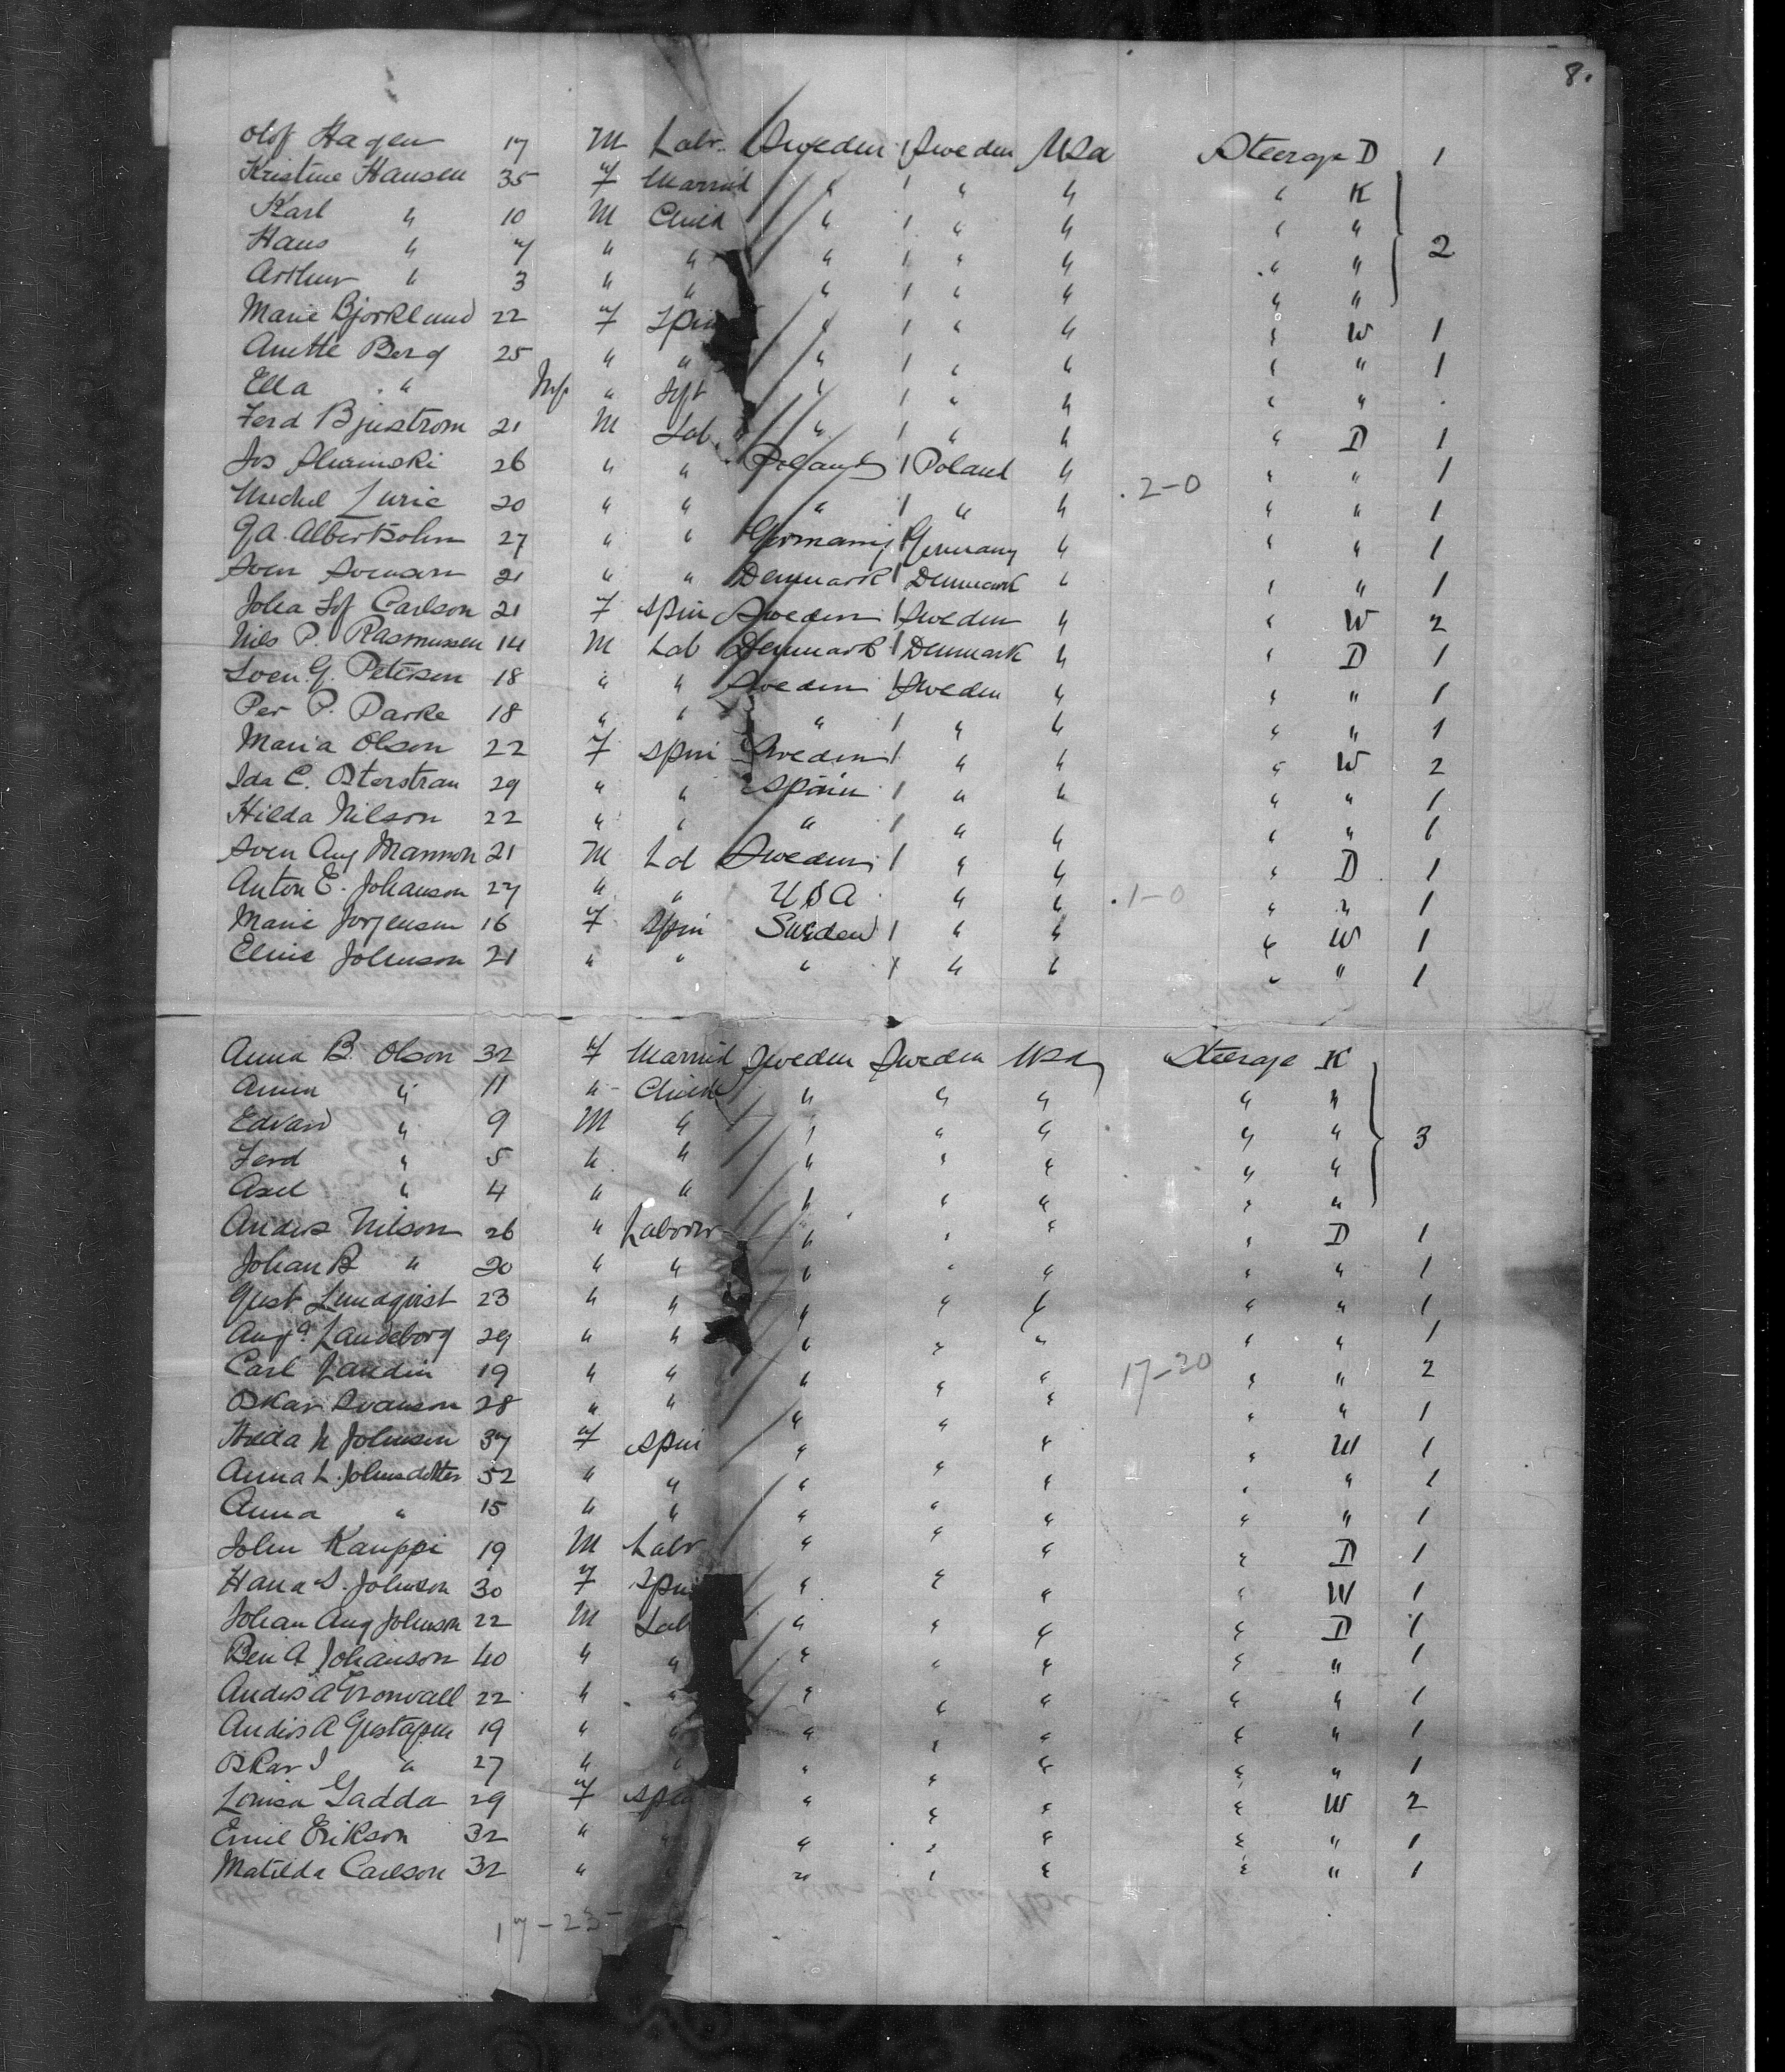 8.
Olof Hagen 17 M Labr. Sweden Sweden USA Steerage D 1
Kristine Hansen 35 F Married " 1 " " " K
Karl " 10 M Child " 1 " " " "
Hans " 7 " " " 1 " " " " 2
Arthur " 3 " " " 1 " " " "
Marie Bjorklund 22 F Spin " 1 " " " W 1
Anette Berg 25 " " " 1 " " " " 1
Ella " Inf. " Inft " 1 " " " "
Ferd Bjustrom 21 M Lab " 1 " " " D 1
Jos 26 " " Poland 1 Poland " " " 1
2-0
Michel Lurie 20 " " " 1 " " " " 1
Albertsohn 27 " " Germany 1 Germany " " " 1
Sven Svenson 21 " " Denmark 1 Denmark " " " 1
Carlson 21 F Spin Sweden 1 Sweden " " W 2
Nils P. Rasmussen 14 M Lab Denmark 1 Denmark " " D 1
Sven G. Petersen 18 " " Sweden 1 Sweden " " " 1
Per P. Parke 18 " " " 1 " " " " 1
Maria Olson 22 F Spin Sweden 1 " " " W 2
Ida C. Osterstran 29 " " Spain 1 " " " " 1
Hilda Nilson 22 " " " 1 " " " " 1
Sven Aug Mannon 21 M Lab Sweden 1 " " " D 1
Anton E. Johanson 27 " " USA " " 1-0 " " 1
Marie Jorjensen 16 F Spin Sweden 1 " " " W 1
Elvie Johnson 21 " " " 1 " " " " 1
Anna B. Olson 32 F Married Sweden Sweden USA Steerage K
" 11 " Child " " " " "
Edvard " 9 M " " " " " " 3
Ferd " 5 " " " " " " "
Axel " 4 " " " " " " "
Anders Nilson 26 " Laborer " " " " D 1
Johan B " 20 " " " " " " " 1
Gust Lundqvist 23 " " " " " " " 1
Landeborg 29 " " " " " " " 1
Carl 19 " " " " " 17-20 " " 2
Oskar Svanson 28 " " " " " " " 1
Johnson 37 F Spin " " " " W 1
Anna L. Johnsdotter 52 " " " " " " " 1
Anna " 15 " " " " " " " 1
John Kauppi 19 M Labr " " " " D 1
Hana S. Johnson 30 F Spin " " " " W 1
Johan Aug Johnson 22 M Lab " " " " D 1
Ben A Johanson 40 " " " " " " " 1
Anders A Gronvall 22 " " " " " " " 1
Anders A Gustafson 19 " " " " " " " 1
Oskar J " 27 " " " " " " " 1
Louisa Gadda 29 F Spin " " " " W 2
Emil Erikson 32 " " " " " " " 1
Matilda Carlson 32 " " " " " " 1
17-25